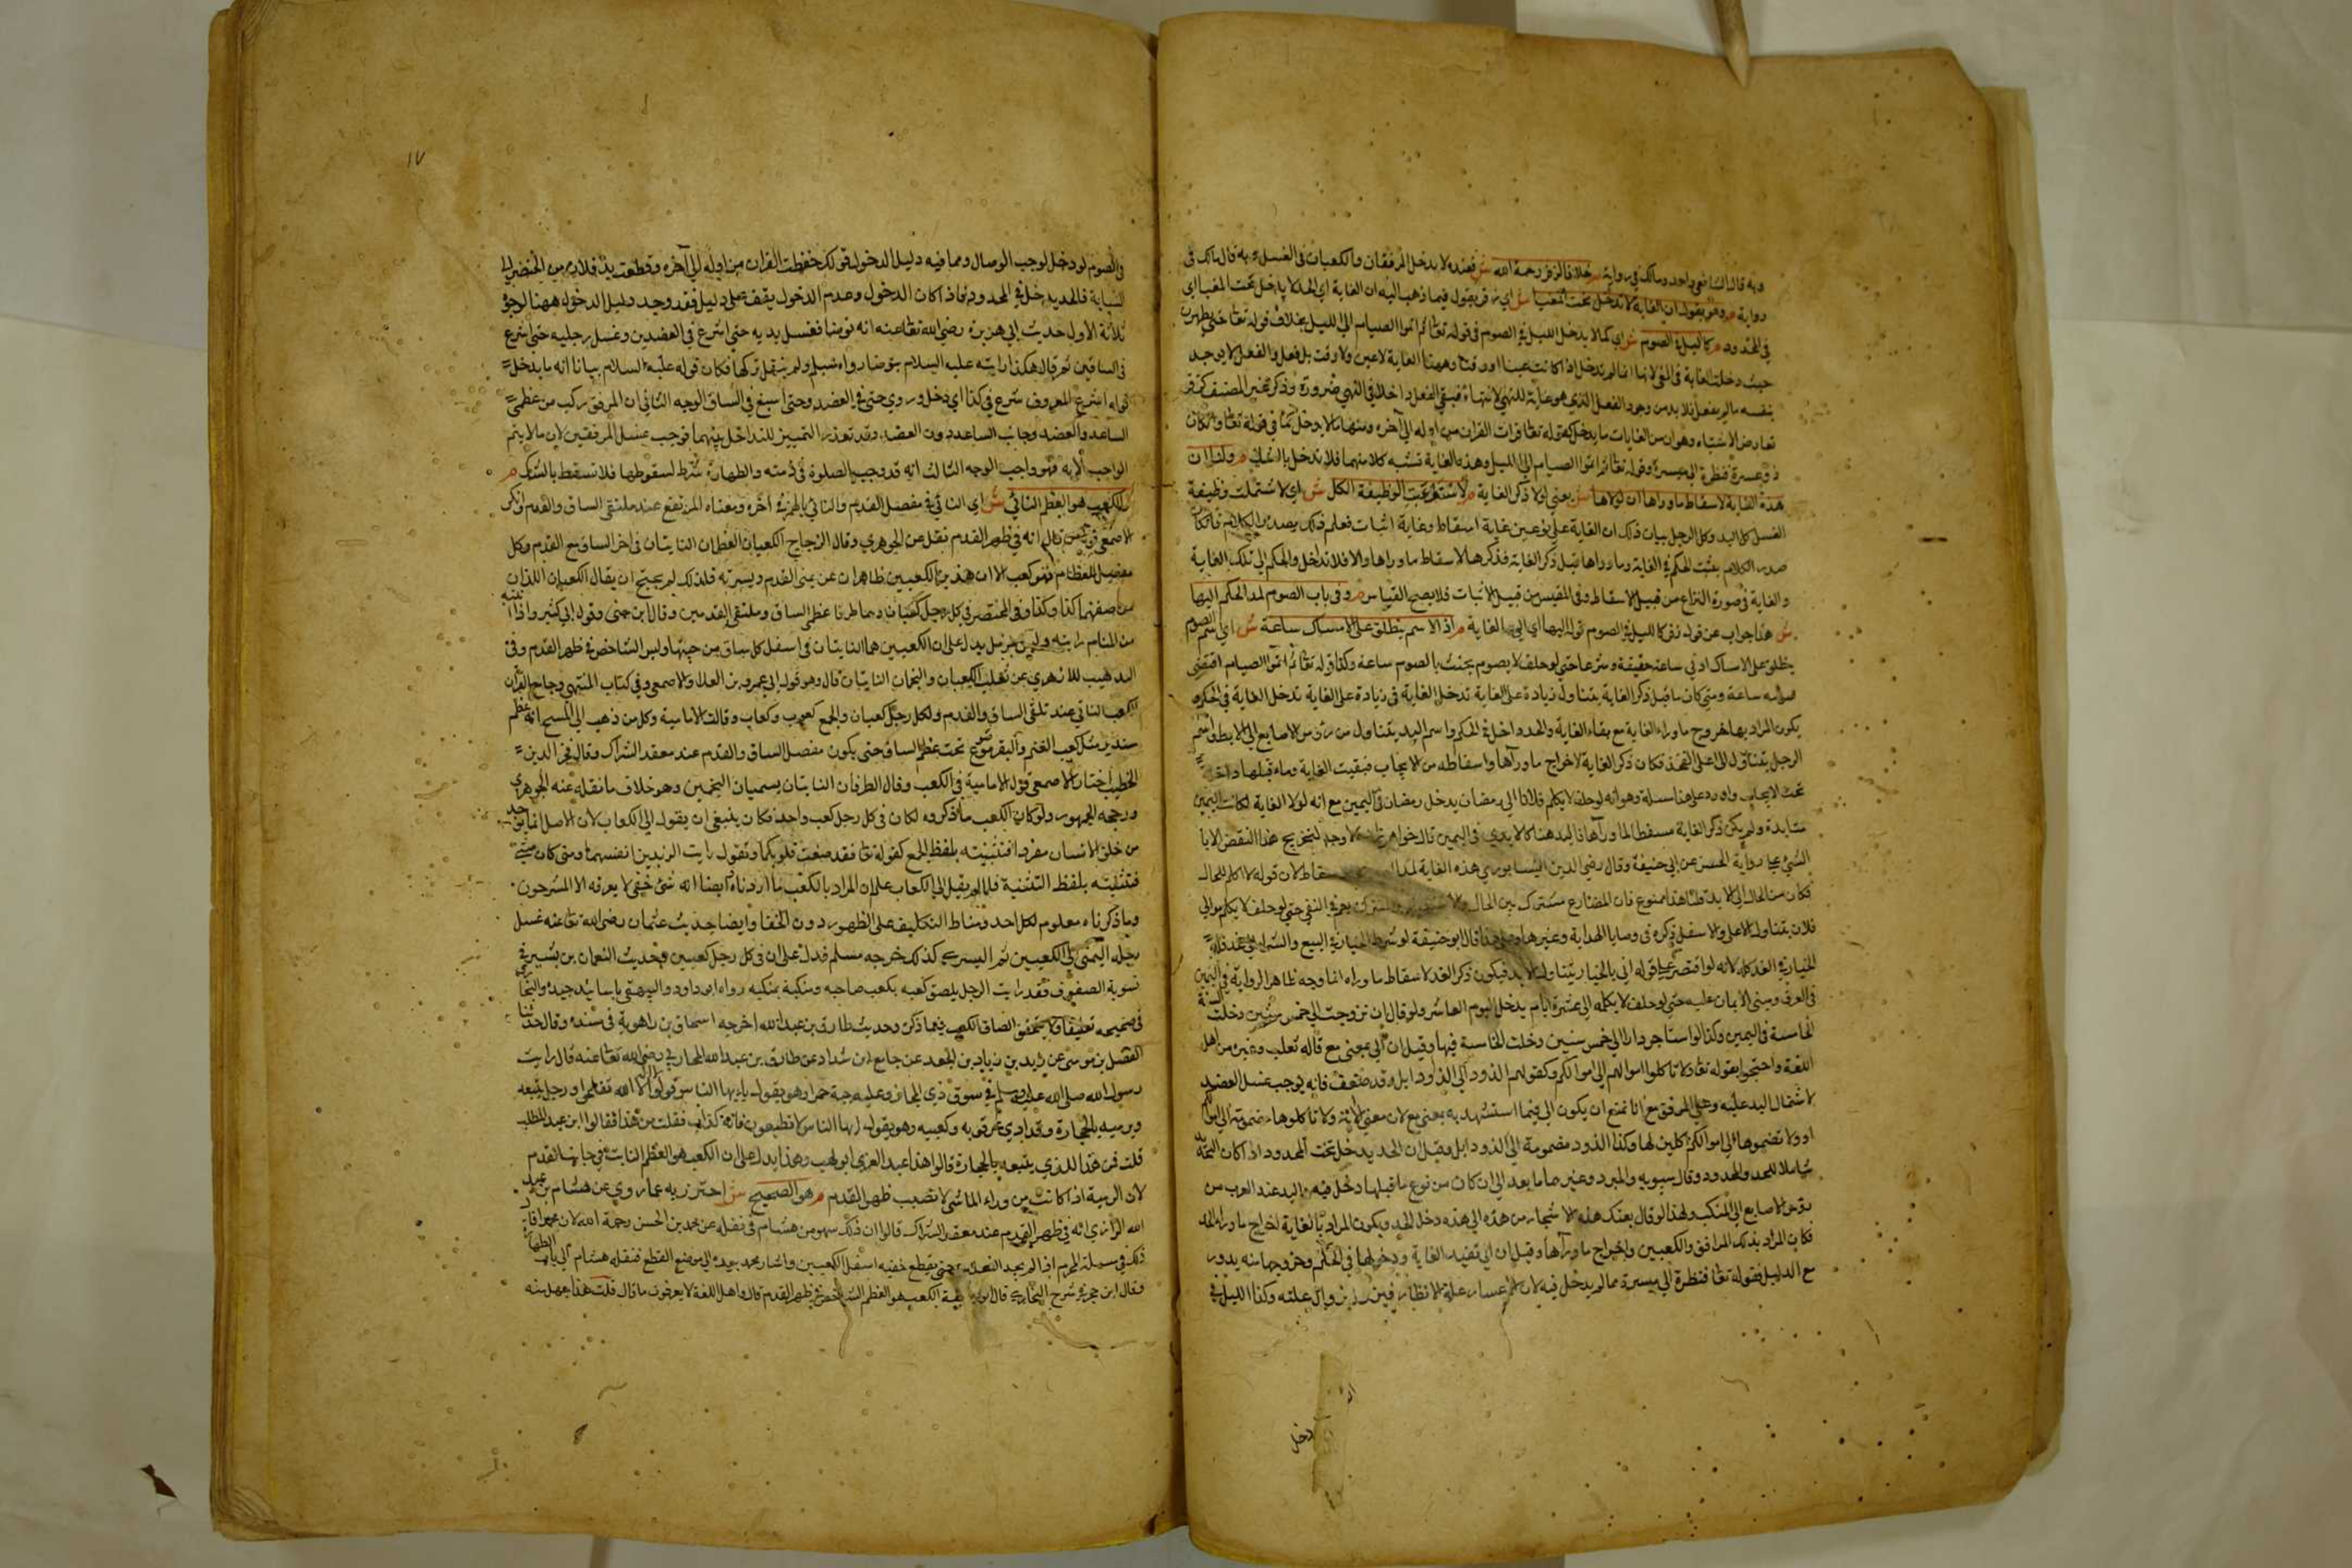 وبه قال الشافعي واحمد ومالك في رواية م خلافا لزفر رحمه الله ش فعنده لا يدخل المرفقان والكعبان في الغسل وبه قال مالك في
رواية م وهو يقول ان الغاية لا تدخل تحت المغيا ش اي زفر يقول فيما ذهب اليه ان الغاية اي الحد لا يدخل تحت المغيا اي
في المحدود م كالليل في الصوم ش اي كما لا يدخل الليل في الصوم في قوله تعا ثم اتموا الصيام الي الليل بخلاف قوله تعا حتي يطهرن
حيث دخلت الغاية في لانها انما لم تدخل اذا كانت عينا او وقتا وههنا الغاية لا عين ولا وقت بل فعل والفعل لا يوجد
بنفسه مالم يفعل فلا بد من وجود الفعل الذي هو غاية للنهي لانتهاء فيبقي الفعل داخلا في النهي ضرورة وذكر غير المصنف
تعارض الاشباه وهو ان من الغايات ما يدخل كقوله قرات القران من اوله الي آخره ومنها ما لا يدخل كما في قوله تعا وان كان
ذو عسرة فنظرة الي ميسرة وقوله تعا ثم اتموا الصيام الي الليل وهذه الغاية تشبه كلا منهما فلا تدخل بالشك م ولنا ان
هذه الغاية لاسقاط ما وراها اذ لولاها ش يعني لولا ذكر الغاية م لاستوعبت الوظيفة الكل ش اي لاشتملت وظيفة
الغسل كل اليد وكل الرجل بيان ذلك ان الغاية علي نوعين غاية اسقاط وغاية اثبات فيعلم ذلك بصدر الكلام فان كان
صدر الكلام يثبت الحكم في الغاية وما وراها قبل ذكر الغاية فذكرها لاسقاط ما وراها والا فلامتداد الحكم الي تلك الغاية
والغاية في صورة النزاع من قبيل الاسقاط وفي المقيس من قبيل الاثبات فلا يصح القياس م وفي باب الصوم لمد الحكم اليها
ش هذا جواب عن قوله زفر كالليل في الصوم قوله اليها اي الي الغاية م اذ الاسم يطلق علي الامساك ساعة ش اي اسم الصوم
يطلق علي الامساك ادني ساعة حقيقة وشرعا حتي لو حلف لا يصوم يحنث بالصوم ساعة وكذا قوله تعا ثم اتموا الصيام اقتضي
صومه ساعة ومتي كان ما قبل ذكر الغاية يتناول زيادة علي الغاية تدخل الغاية في الحكم و
يكون المراد بها خروج ما وراء الغاية مع بقاء الغاية والحد داخلا في الحكم واسم اليد يتناول من رؤس الاصابع الي الابط واسم
الرجل يتناول الي اعلي الفخذ فكان ذكر الغاية لاخراج ما ورآها واسقاطه من الايجاب فبقيت الغاية وما قبلها داخلا
تحت الايجاب واورد علي هذا مسئلة وهو انه لو حلف لا يكلم فلانا الي رمضان يدخل رمضان في اليمين مع انه لولا الغاية لكانت اليمين
متابدة ولم يكن ذكر الغاية مسقطا لما ورآها قال خواهر زاده لا وجه لتخريج هذا النقض الا با
رواية الحسن عن ابي حنيفة وقال رضي الدين النيسابوري هذه الغاية لمد لا للاسقاط لان قوله لا اكلم للحال
فكان من الحال الي الابد قلنا هذا ممنوع فان المضارع مشترك بين الحال والاستقبال والمشترك يعم في النفي حتي لو حلف لا يكلم موالي
فلان يتناول الاعلي والاسفل ذكره في وصايا الهداية وغيرها وعلي هذا قال ابو حنيفة لو شرط الخيار في البيع والشراء الي غد فله
الخيار في الغد كله لانه لو اقتصر علي قوله اني بالخيار يتناول الابد فيكون ذكر الغد لاسقاط ما وراه اما وجه ظاهر الرواية في اليمين
في العرف ومبني الايمان عليه حتي لو حلف لا يكلمه الي عشرة ايام يدخل اليوم العاشر ولو قال ان تزوجت الي خمس سنين دخلت السنة
الخامسة في اليمين وكذا لو استاجر دارا الي خمس سنين دخلت الخامسة فيها وقيل ان الي بمعني مع قاله ثعلب وغيره من اهل
اللغة واحتجوا بقوله تعا ولا تاكلوا اموالهم الي اموالكم وكقولهم الذود الي الذود ابل وقد ضعف فانه يوجب غسل العضد
لاشتمال اليد عليه وعلي المرفق مع انا نمنع ان يكون الي فيما استشهد به بمعني مع لان معني الآية ولا تاكلوها مضمومة الي اموالكم
او ولا تضموها الي اموالكم آكلين لها وكذا الذود مضمومة الي الذود ابل وقيل ان الحد يدخل تحت المحدود اذا كان
شاملا للحد والمحدود وقال سيبويه والمبرد وغيرهما ما بعد الي ان كان من نوع ما قبلها دخل فيه واليد عند العرب من
رؤس الاصابع الي المنكب ولهذا لو قال بعتك هذه الاشجار من هذه الي هذه دخل الحد ويكون المراد بالغاية اخراج ما وراء الحد
فكان المراد بذكر المرافق والكعبين واخراج ما ورآها وقيل ان الي تفيد الغاية ودخولها في الحكم وخروجها منه يدور
مع الدليل فقوله تعا فنظرة الي ميسرة مما لم يدخل فيه لان الاعسار علة الانظار فيزول بزوال علته وكذا الليل في
دخل
١٧
في الصوم لو دخل لوجب الوصال ومما فيه دليل الدخول قولك حفظت القران من اوله الي آخره وقطعت يد فلان من الخنصر الي
السبابة فالحد يدخل في المحدود فاذا كان الدخول وعدم الدخول يقف علي دليل فقد وجد دليل الدخول ههنا لوجوه
ثلاثة الاول حديث ابي هريرة رضي الله تعا عنه انه توضا فغسل يديه حتي اشرع في العضدين وغسل رجليه حتي اشرع
في الساقين ثم قال هكذا رايته عليه السلام يتوضا رواه مسلم ولم ينقل تركها فكان قوله عليه السلام بيانا انه ما يدخل
قوله اشرع المعروف شرع في كذا اي دخل وروي حتي في العضد وحتي اسبغ في الساق الوجه الثاني ان المرفق ركب من عظمي
الساعد والعضد وجانب الساعد دون العضد وقد تعذر التمييز للتداخل بينهما فوجب غسل المرفقين لان ما لا يتم
الواجب الا به فهو واجب الوجه الثالث انه قد وجب الصلوة في ذمته والطهارة شرط لسقوطها فلا تسقط بالشك م
والكعب هو العظم الناتئ ش اي الناتئ في مفصل القدم والناتئ بالهمزة آخره ومعناه المرتفع عند ملتقي الساق والقدم وانكر
الاصمعي قول انه في ظهر القدم نقل عن الجوهري وقال الزجاج الكعبان العظمان الناتيان في آخر الساق مع القدم وكل
مفصل للعظام فهو كعب الا ان هذين الكعبين ظاهران عن يمني القدم ويسرته فلذلك لم يحتج ان يقال الكعبان اللذان
من صفتهما كذا وكذا وفي المختصر في كل رجل كعبان وهما طرفا عظمي الساق وملتقي القدمين وقال ابن جني وقول ابي كبير واذا
من المنام رايته يدل علي ان الكعبين هما الناتيان في اسفل كل ساق من جنبها وليس الشاخص في ظهر القدم وفي
التهذيب للازهري عن ثعلب الكعبان والمنجمان الناتيان قال وهو قول ابي عمرو بن العلاء والاصمعي وفي كتاب المنتهي وجامع القزاز
الكعب الناتئ عند ملتقي الساق والقدم ولكل رجل كعبان والجمع كعوب وكعاب وقالت الامامية وكل من ذهب الي المسح انه عظم
مستدير مثل كعب الغنم والبقر موضوع تحت عظم الساق حتي يكون مفصل الساق والقدم عند معقد الشراك وقال فخر الدين
الخطيب اختار الاصمعي قول الامامية في الكعب وقال الطرفان الناتيان يسميان المنجمين وهو خلاف ما نقله عنه الجوهري
ورجحه الجمهور ولو كان الكعب ما ذكروه لكان في كل رجل كعب واحد فكان ينبغي ان يقول الي الكعاب لان الاصل انما يوجد
من خلق الانسان مفردا فتثنيته بلفظ الجمع كقوله تعا فقد صغت قلوبكما وتقول رايت الزيدين انفسهما ومتي كان مثني
فتثنيته بلفظ التثنية فلما لم يقل الي الكعاب علم ان المراد بالكعب ما اردناه وايضا انه شئ خفي لا يعرفه الا المشرحون
وما ذكرناه معلوم لكل احد ومناط التكليف علي الظهور دون الخفا وايضا حديث عثمان رضي الله تعا عنه غسل
رجله اليمني الي الكعبين ثم اليسري كذلك خرجه مسلم فدل علي ان في كل رجل كعبين وحديث النعمان بن بشير في
تسوية الصفوف فقد رايت الرجل يلصق كعبه بكعب صاحبه ومنكبه بمنكبه رواه ابو داود والبيهقي باسانيد جيدة والبخاري
في صحيحه تعليقا ولا يتحقق الصاق الكعب فيما ذكر وحديث طارق بن عبد الله اخرجه اسحاق بن راهوية في مسنده وقال حدثنا
الفضل بن موسي عن زيد بن زياد بن الجعد عن جامع ابن شداد عن طارق بن عبد الله المحاربي رضي الله تعا عنه قال رايت
رسول الله صلي الله عليه وسلم في سوق ذي المجاز وعليه جبة حمرا وهو يقول يا ايها الناس قولوا لا اله الا الله تفلحوا ورجل يتبعه
ويرميه بالحجارة وقد ادمي عرقوبه وكعبيه وهو يقول ايها الناس لا تطيعوه فانه كذاب فقلت من هذا فقالوا ابن عبد المطلب
قلت فمن هذا الذي يتبعه بالحجارة قالوا هذا عبد العزي ابو لهب وهذا يدل علي ان الكعب هو العظم الناتئ في جانب القدم
لان الرمية اذا كانت من وراء الماشي لا تصيب ظهر القدم م هو الصحيح ش احترز به عما روي عن هشام بن عبيد
الله الرازي انه في ظهر القدم عند معقد الشراك قالوا ان ذلك سهو من هشام في نقله عن محمد بن الحسن رحمة الله لان محمدا قال
ذلك في مسئلة المحرم اذا لم يجد النعلين حتي يقطع خفيه اسفل الكعبين واشار محمد بيده الي موضع القطع فنقله هشام الي باب الطهارة
وقال ابن حجر في شرح البخاري قال ابو حنيفة الكعب هو العظم الشاخص في ظهر القدم قال واهل اللغة لا يعرفون ما قال قلت هذا جهل منه